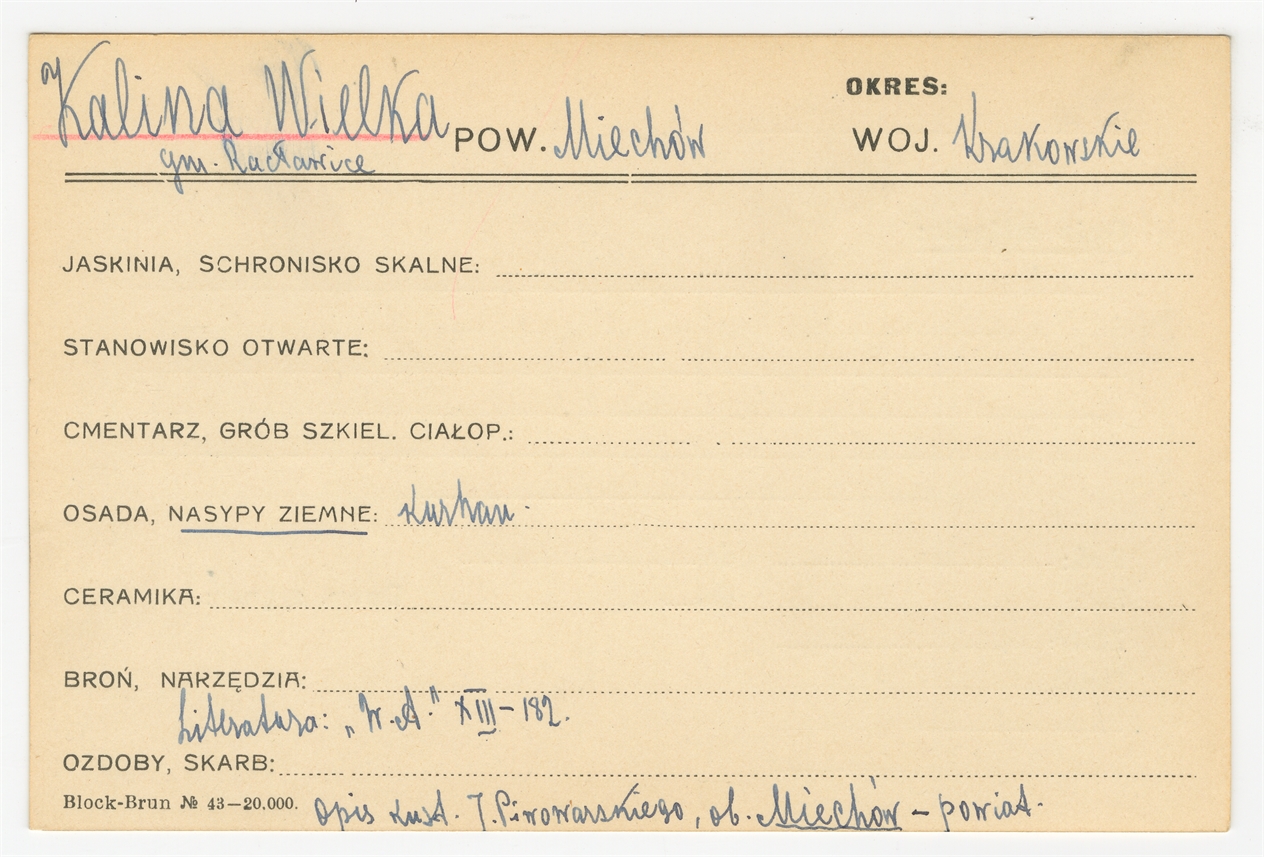 OKRES:
Kalina Wielka POW. Miechów WOJ. Krakowskie
gm. Racławice
JASKINIA, SCHRONISKO SKALNE:
STANOWISKO OTWARTE:
CMENTARZ, GRÓB SZKIEL. CIAŁOP.:
OSADA, NASYPY ZIEMNE: Kurhan.
CERAMIKA:
BROŃ, NARZĘDZIA:
Literatura: „W.A." XIII-182.
OZDOBY, SKARB:
Block-Brun № 43—20.000. opis kust. J. Piwowarskiego, ob. Miechów - powiat.